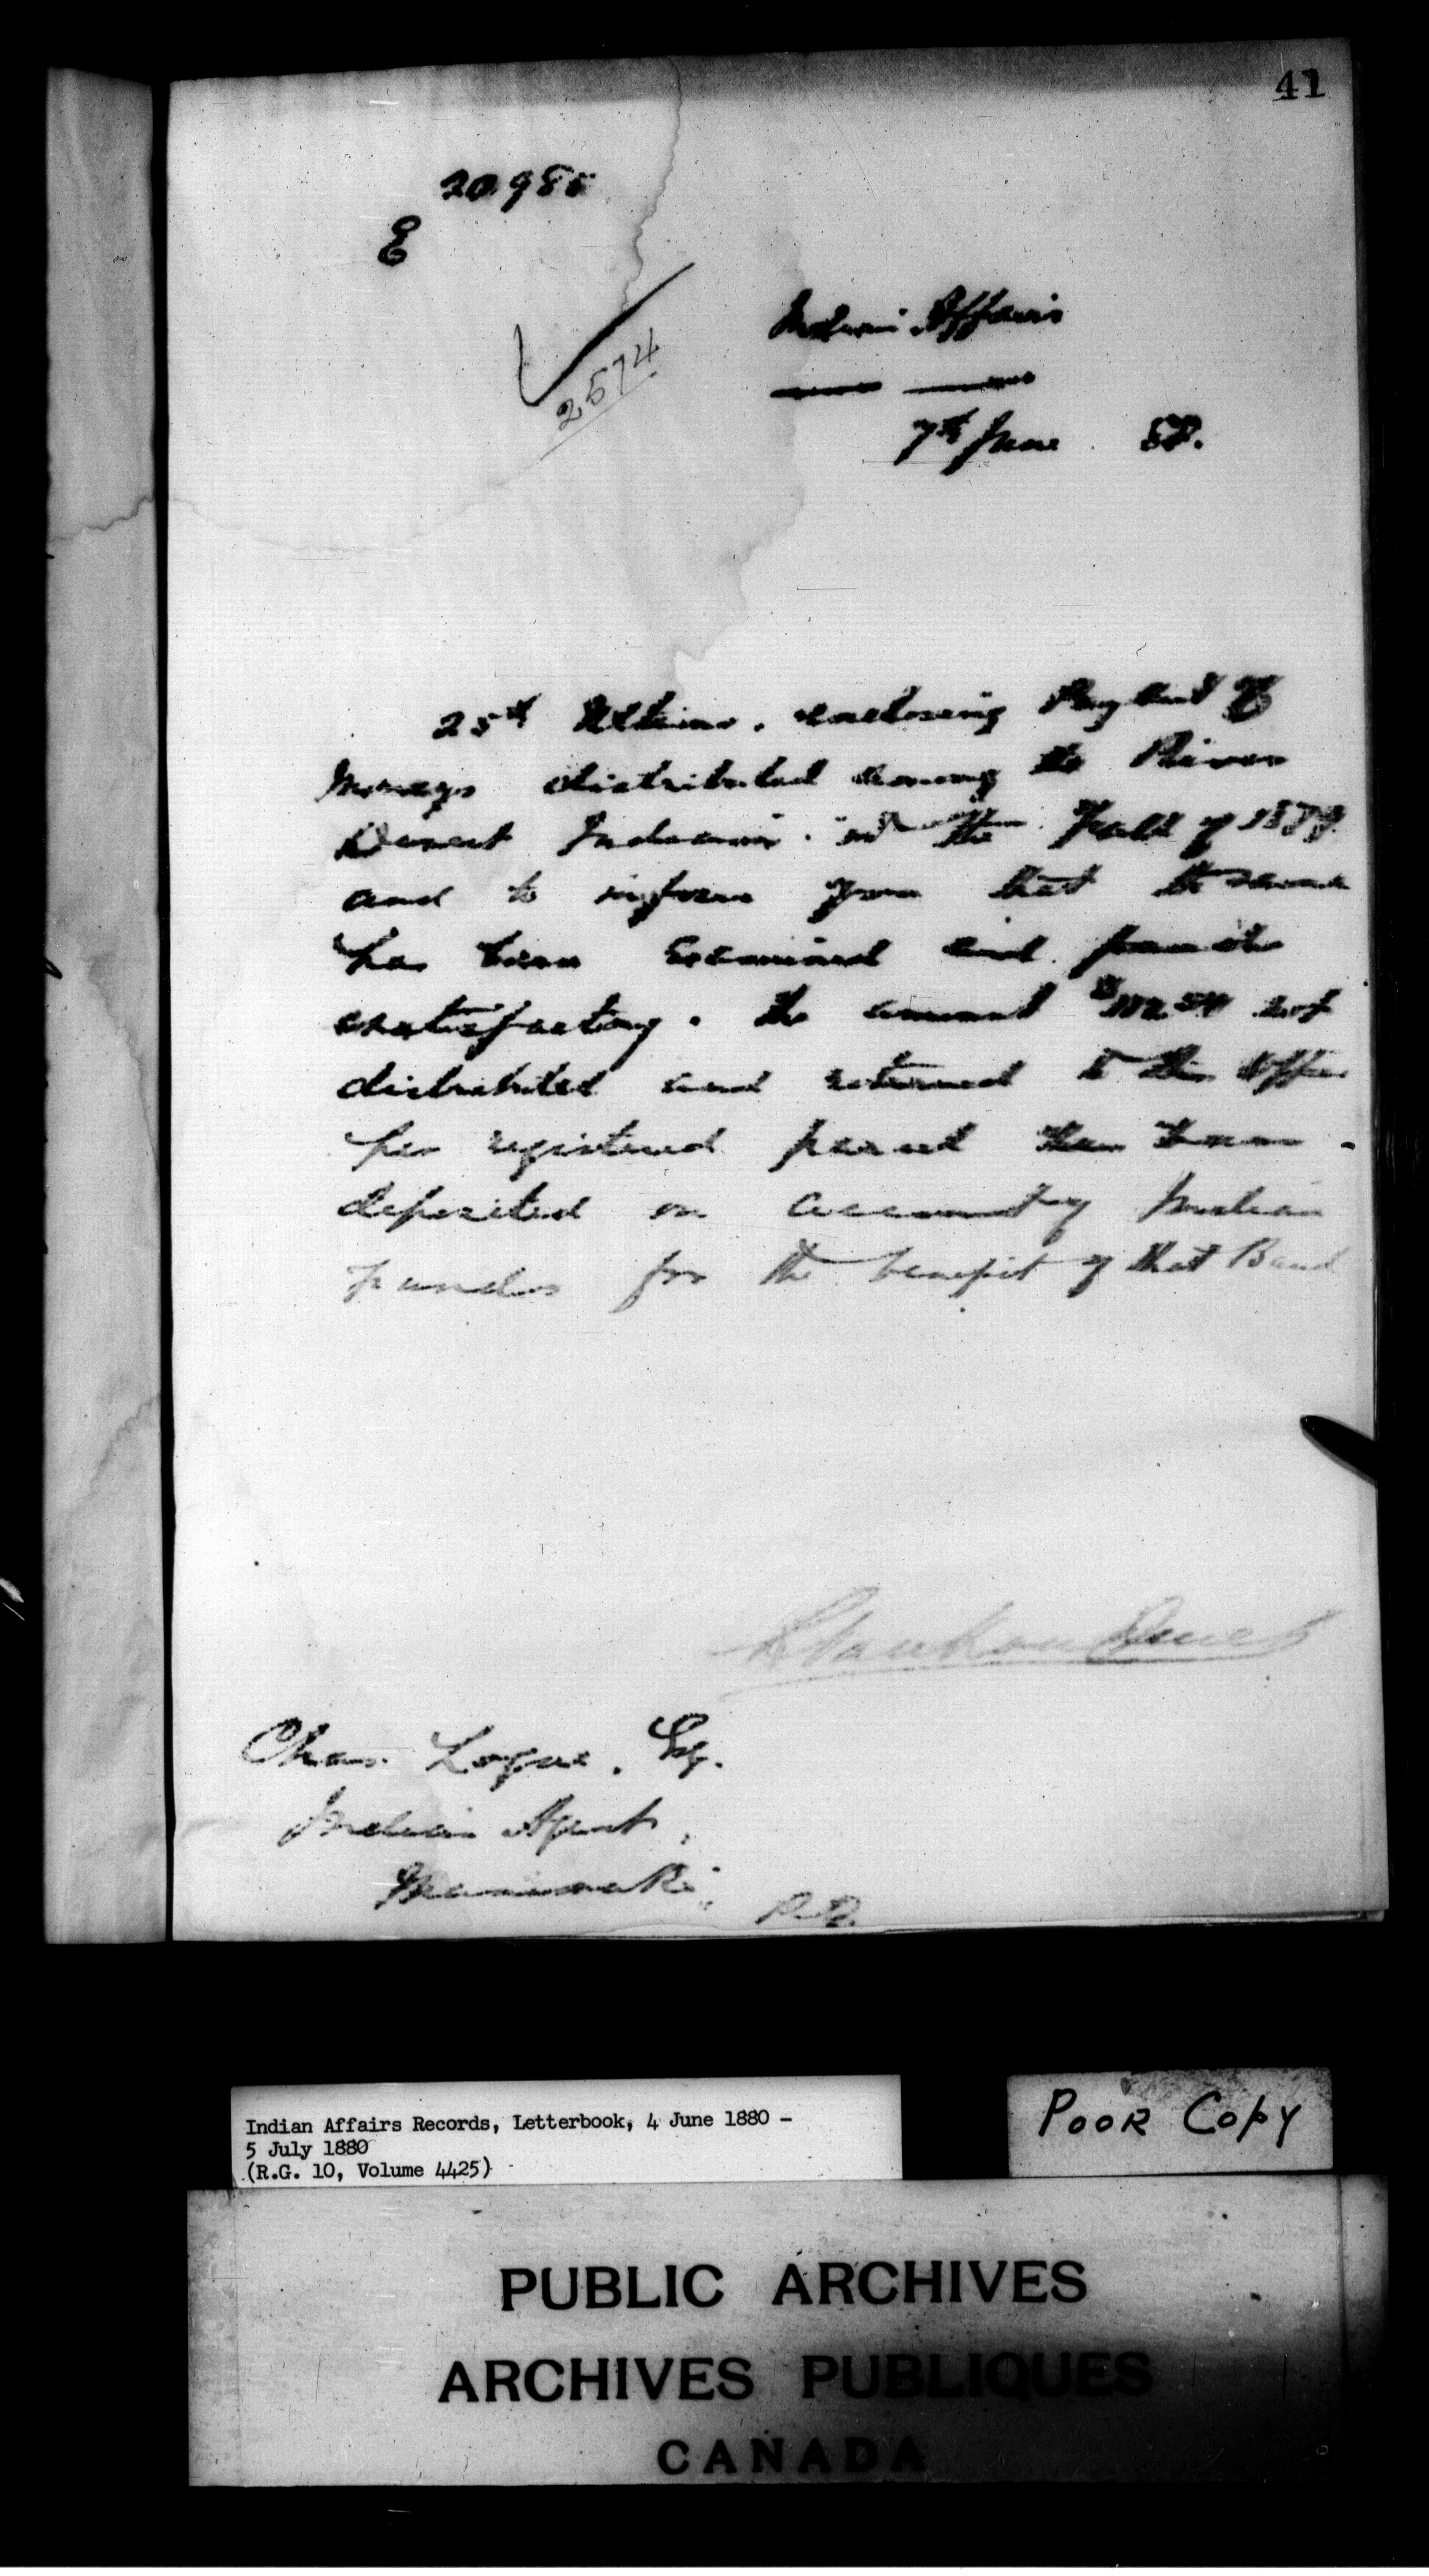 41
20.98
E
2574
Indian Affairs
7th June 80.
25th Ultimo. enclosing Pay List of
Moneys distributed among the River
Desert Indians. in the Fall of 1879
and to inform you that the same
has been Examined and found
satisfactory. the amount $112.50 not
distributed and returned to this Office
per registered parcel has been
deposited on account of Indian
funds for the benefit of that Band
Chas. Logue. Esq.
Indian Agent,
Maniwaki,
P.Q.
Indian Affairs Records, Letterbook, 4 June 1880 -
5 July 1880
(R.G. 10, Volume 4425)
POOR COPY
PUBLIC ARCHIVES
ARCHIVES PUBLIQUES
CANADA